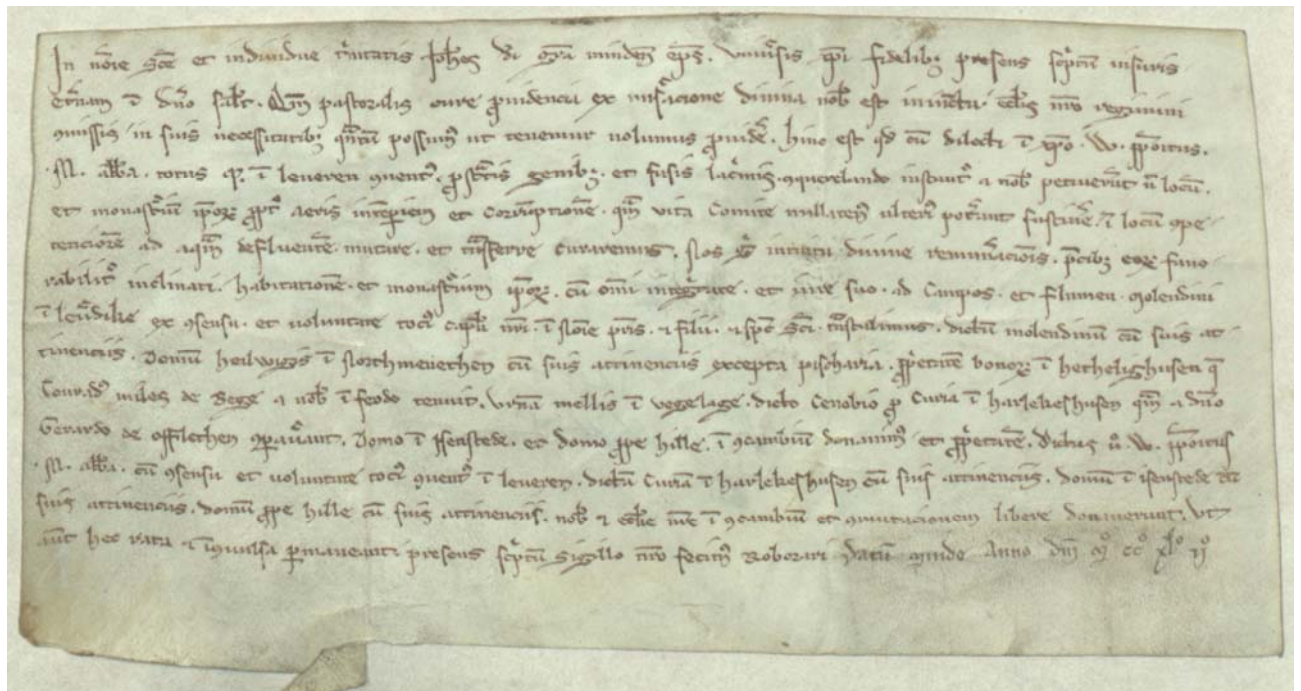 In nōie Scē et individue t'nitatis Joh̄es di grā minden̄ ep̄s. univ̄sis xp̄i fidelib; presens sc'ptum visuris
et'nam ī dn̄o sal't. Qm̄ pastoralis cure ꝓvidencia ex mis'acione divina nob' est iniūcta. eccl'iis nr̄o regimini
ꝯmissis in suis necessitatib; qn̄tū possum' ut tenemur volumus ꝓvidēe. hinc est qd cū dilecti ī xp̄o .W. pp̄oitus.
.M. abb'a. totus q; ī leveren ꝯvent'. ꝓst'tis genib; et fusis lac'mis. ꝯquerendo instint' a nob' petiverūt ut locū.
et monast'ium ip̄oꝝ ꝓpt' aeris intēperiem et corrūptionē. qm̄ vita comite nullaten' ulteri' pot'ant sustinēe. ī locū ꝯpe
tenciorē ad aquā defluentē mutare. et t'nsferre curaremus. Nos g' intuitu divine remun'acionis. p̄cib; eoꝝ favo
rabilit' inclinati. habitationē et monast'ium ip̄oꝝ. cū om̄i integ'tate. et iure suo. ad campos. et flumen. molendini
ī lev̄dilie ex ꝯsensu. et voluntate toci' capl'i nr̄i. ī noīe pr̄is. & filii. & sp̄c sc̄i. t'nstulimus. dictū molendinū cū suis at
tinenciis. domū heilwigis ī Northmenechen cū suis attinenciis excepta pischaria. ꝓp'etatē bonoꝝ ī hechelighusen q̄
Conrad' miles de Bege a nob' ī feodo tenuit. urnā mellis ī vegelage. dicto cenobio ꝓ curia ī harlekeshusen qm̄ a dn̄o
Gerardo de offlethen ꝯpav̄ant. domo ī isenstede. et domo ꝓpe hille. ī ꝯcambiū donavim' et ꝓp'etatē. Dictus v̄. W. pp̄oitus
.M. abb'a. cū ꝯsensu et voluntate toci' ꝯvent' ī leveren. dictā curiā ī harlekeshusen cū suis attinenciis. domū ī isenstede cū
suis attinenciis. domū ꝓpe hille cū suis attinenciis. nob' & eccl'ie nr̄e ī ꝯcambiū et ꝯmutacionem libere donaverunt. Ut
aut̄ hec rata & īꝯvulsa ꝑmaneant. presens sc'ptū sigillo nr̄o fecim' Roborari Datū mindo Anno dn̄i m̊ cc̊ xl̊ ij̊